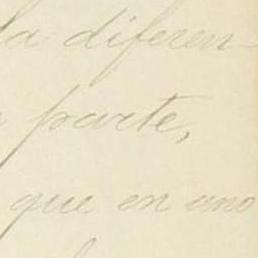 la diferen-
parte,
que en uno